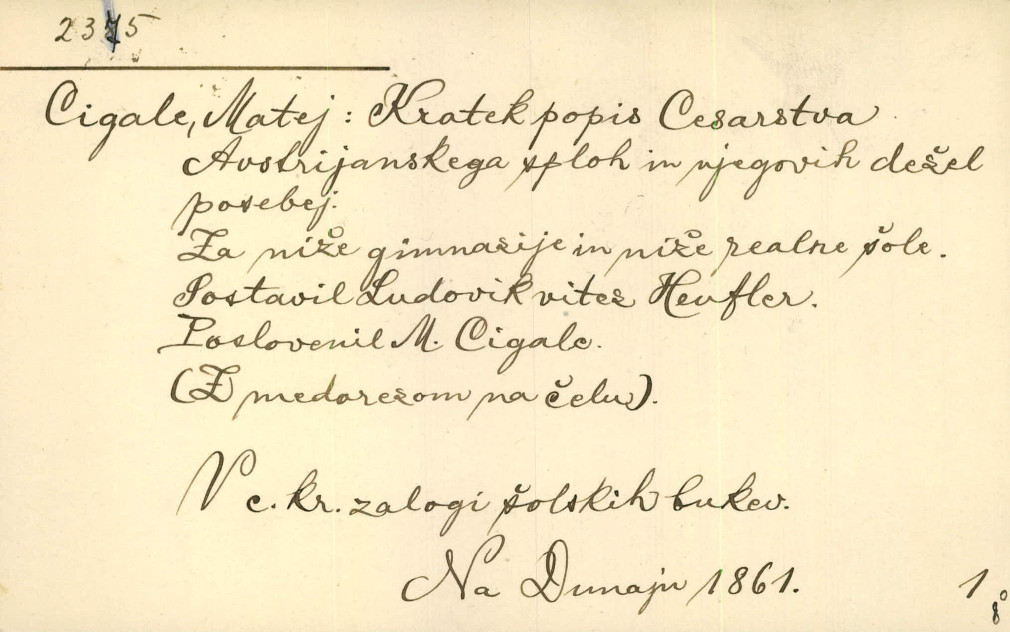 2375
Cigale, Matej: Kratek popis Cesarstva
Avstrijanskega sploh in njegovih dežel
posebej.
Za niže gimnazije in niže realne šole.
Postavil Ludovik vitez Heufler.
Poslovenil M. Cigale.
(Z medorezom na čelu).
V c. kr. zalogi šolskih bukev.
Na Dunaju 1861.
1 8°